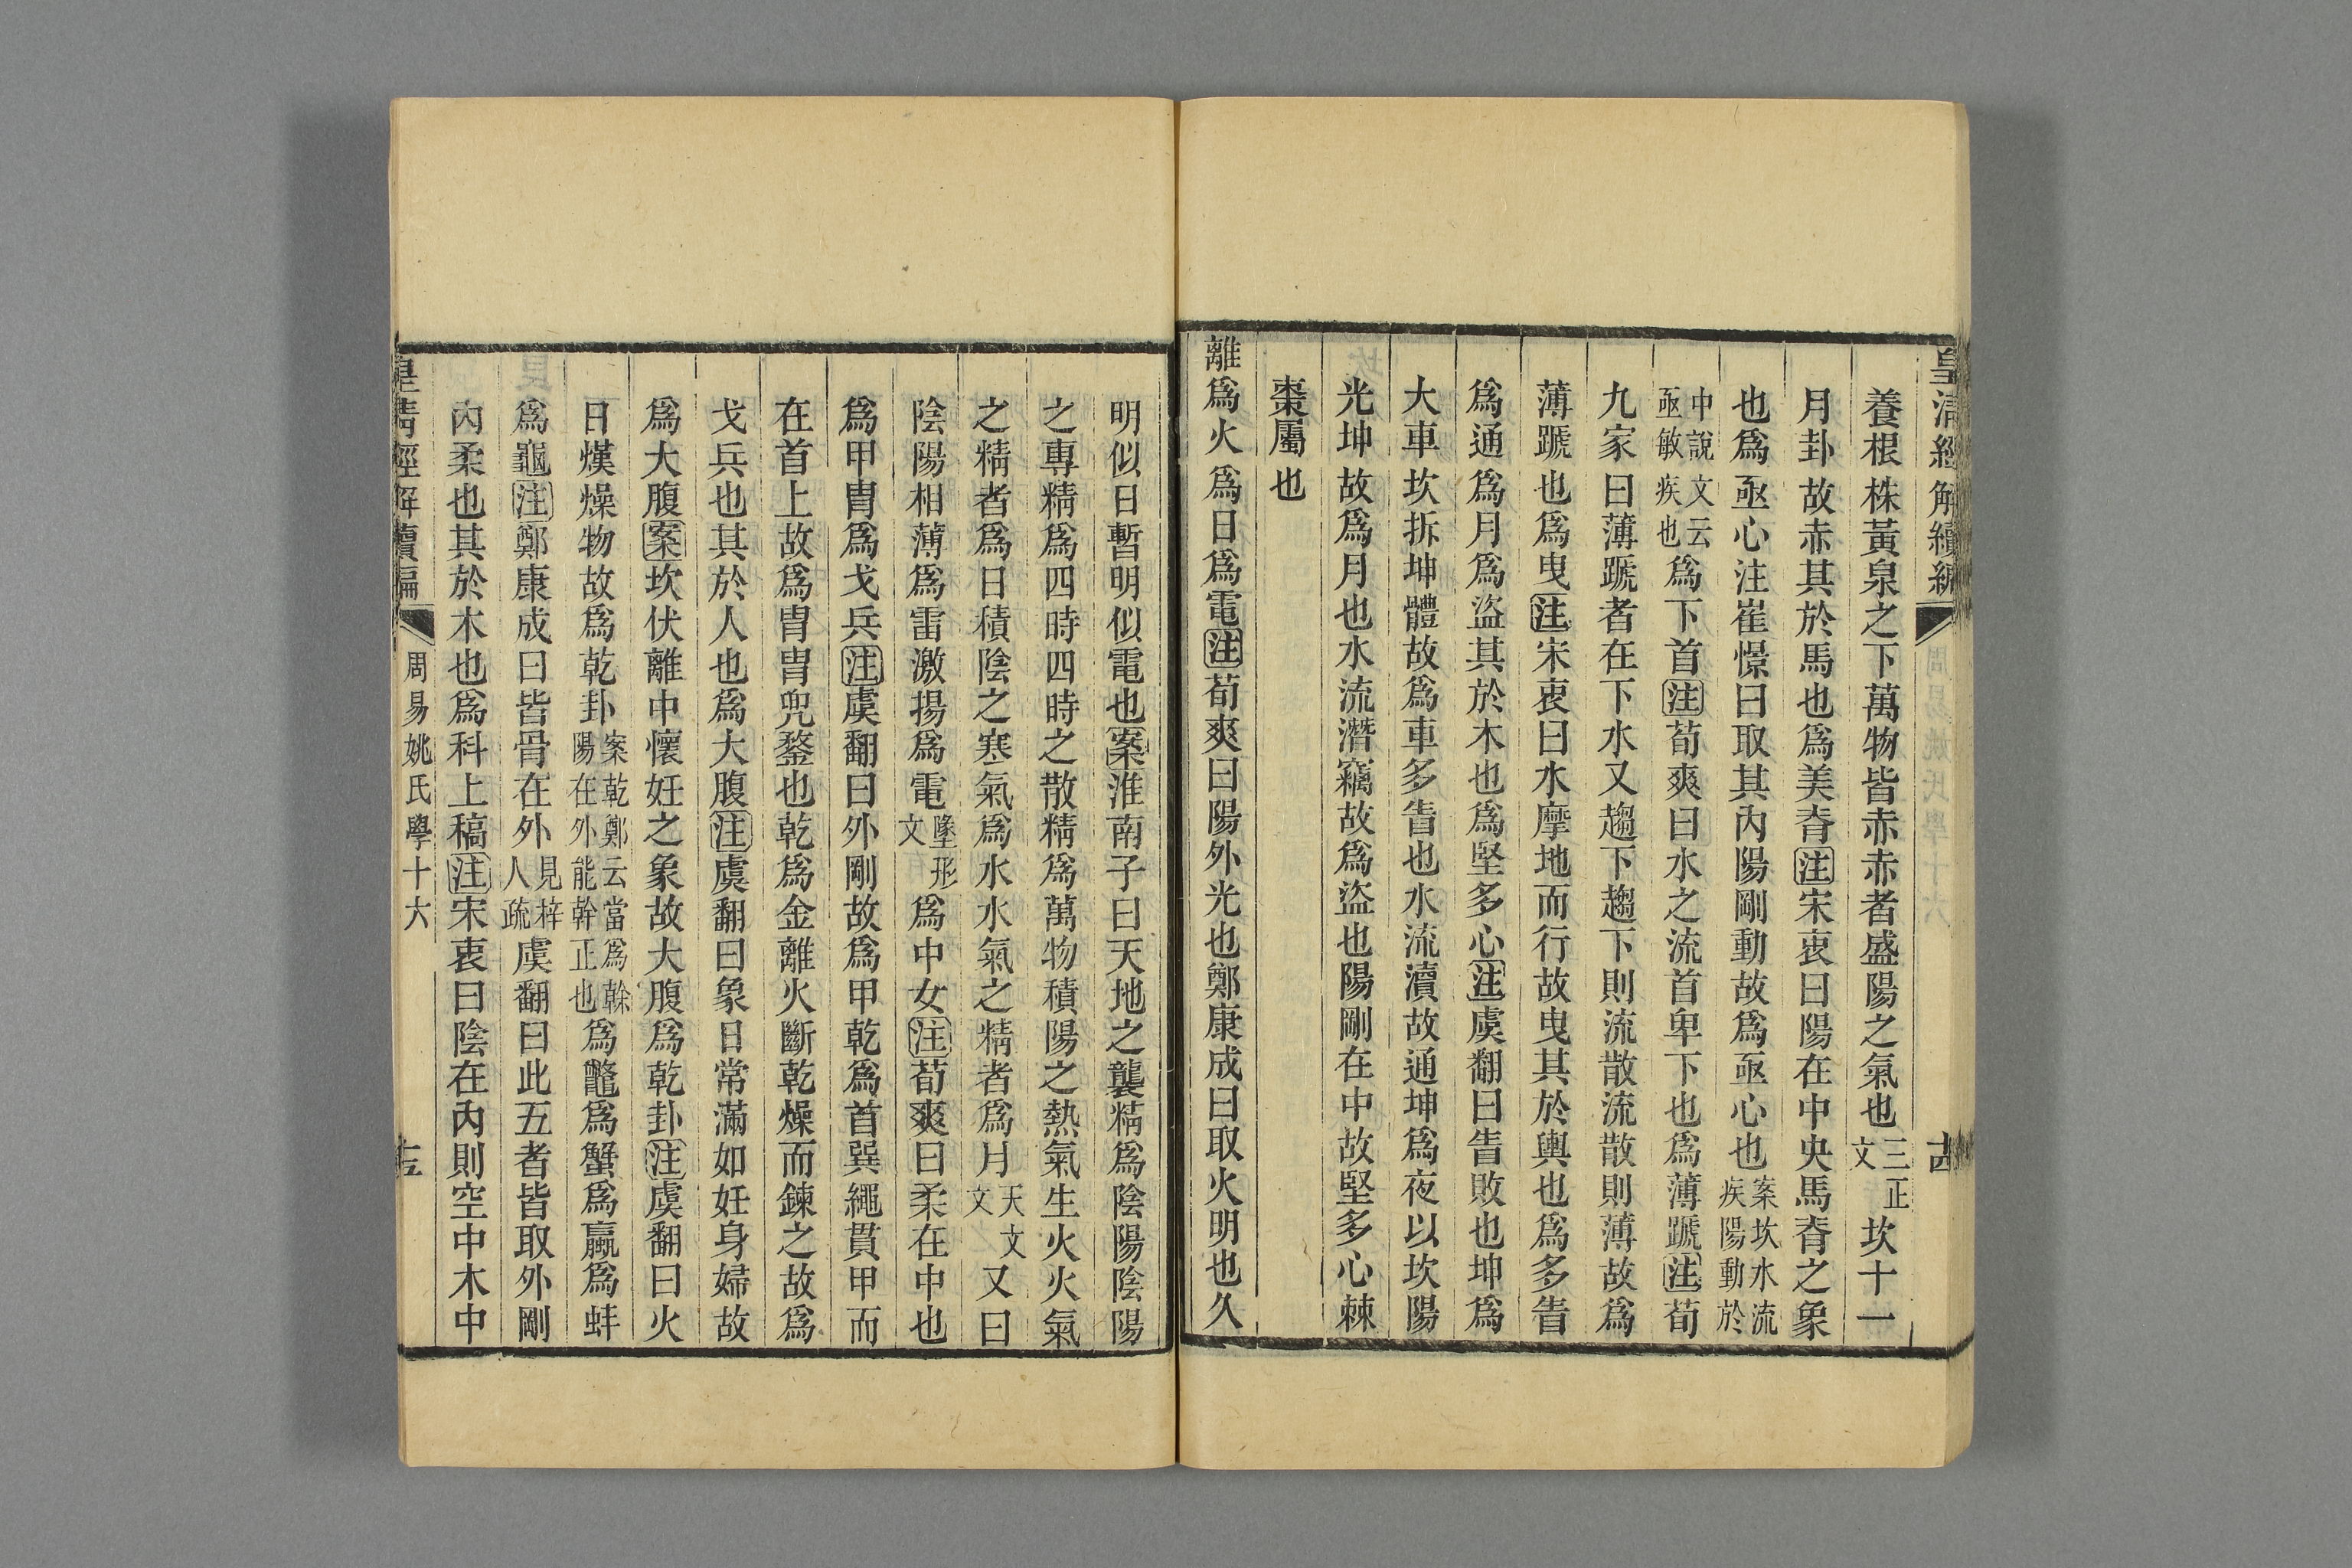 皇清經解續編
十四
養根株黃泉之下萬物皆赤赤者盛陽之氣也三正文坎十一
月卦故赤其於馬也爲美脊注宋衷曰陽在中央馬脊之象
也爲亟心注崔憬曰取其內陽剛動故爲亟心也案坎水流疾陽動於
中說文云亟敏疾也爲下首注荀爽曰水之流首卑下也爲薄蹏注荀
九家曰薄蹏者在下水又趨下趨下則流散流散則薄故爲
薄蹏也爲曳注宋衷曰水摩地而行故曳其於輿也爲多眚
爲通爲月爲盜其於木也爲堅多心注虞翻曰眚敗也坤爲
大車坎拆坤體故爲車多眚也水流瀆故通坤爲夜以坎陽
光坤故爲月也水流潛竊故爲盜也陽剛在中故堅多心棘
棗屬也
離爲火爲日爲電注荀爽曰陽外光也鄭康成曰取火明也久
明似日暫明似電也案淮南子曰天地之襲精爲陰陽陰陽
之專精爲四時四時之散精爲萬物積陽之熱氣生火火氣
之精者爲日積陰之寒氣爲水水氣之精者爲月天文文又曰
陰陽相薄爲雷激揚爲電墬形文爲中女注荀爽曰柔在中也
爲甲冑爲戈兵注虞翻曰外剛故爲甲乾爲首巽繩貫甲而
在首上故爲冑冑兜鍪也乾爲金離火斷乾燥而鍊之故爲
戈兵也其於人也爲大腹注虞翻曰象日常滿如妊身婦故
爲大腹案坎伏離中懷妊之象故大腹爲乾卦注虞翻曰火
日熯燥物故爲乾卦案乾鄭云當爲榦陽在外能幹正也爲鼈爲蟹爲蠃爲蚌
爲龜注鄭康成曰皆骨在外見梓人疏虞翻曰此五者皆取外剛
內柔也其於木也爲科上稿注宋衷曰陰在內則空中木中
皇清經解續編
周易姚氏學十六
十五